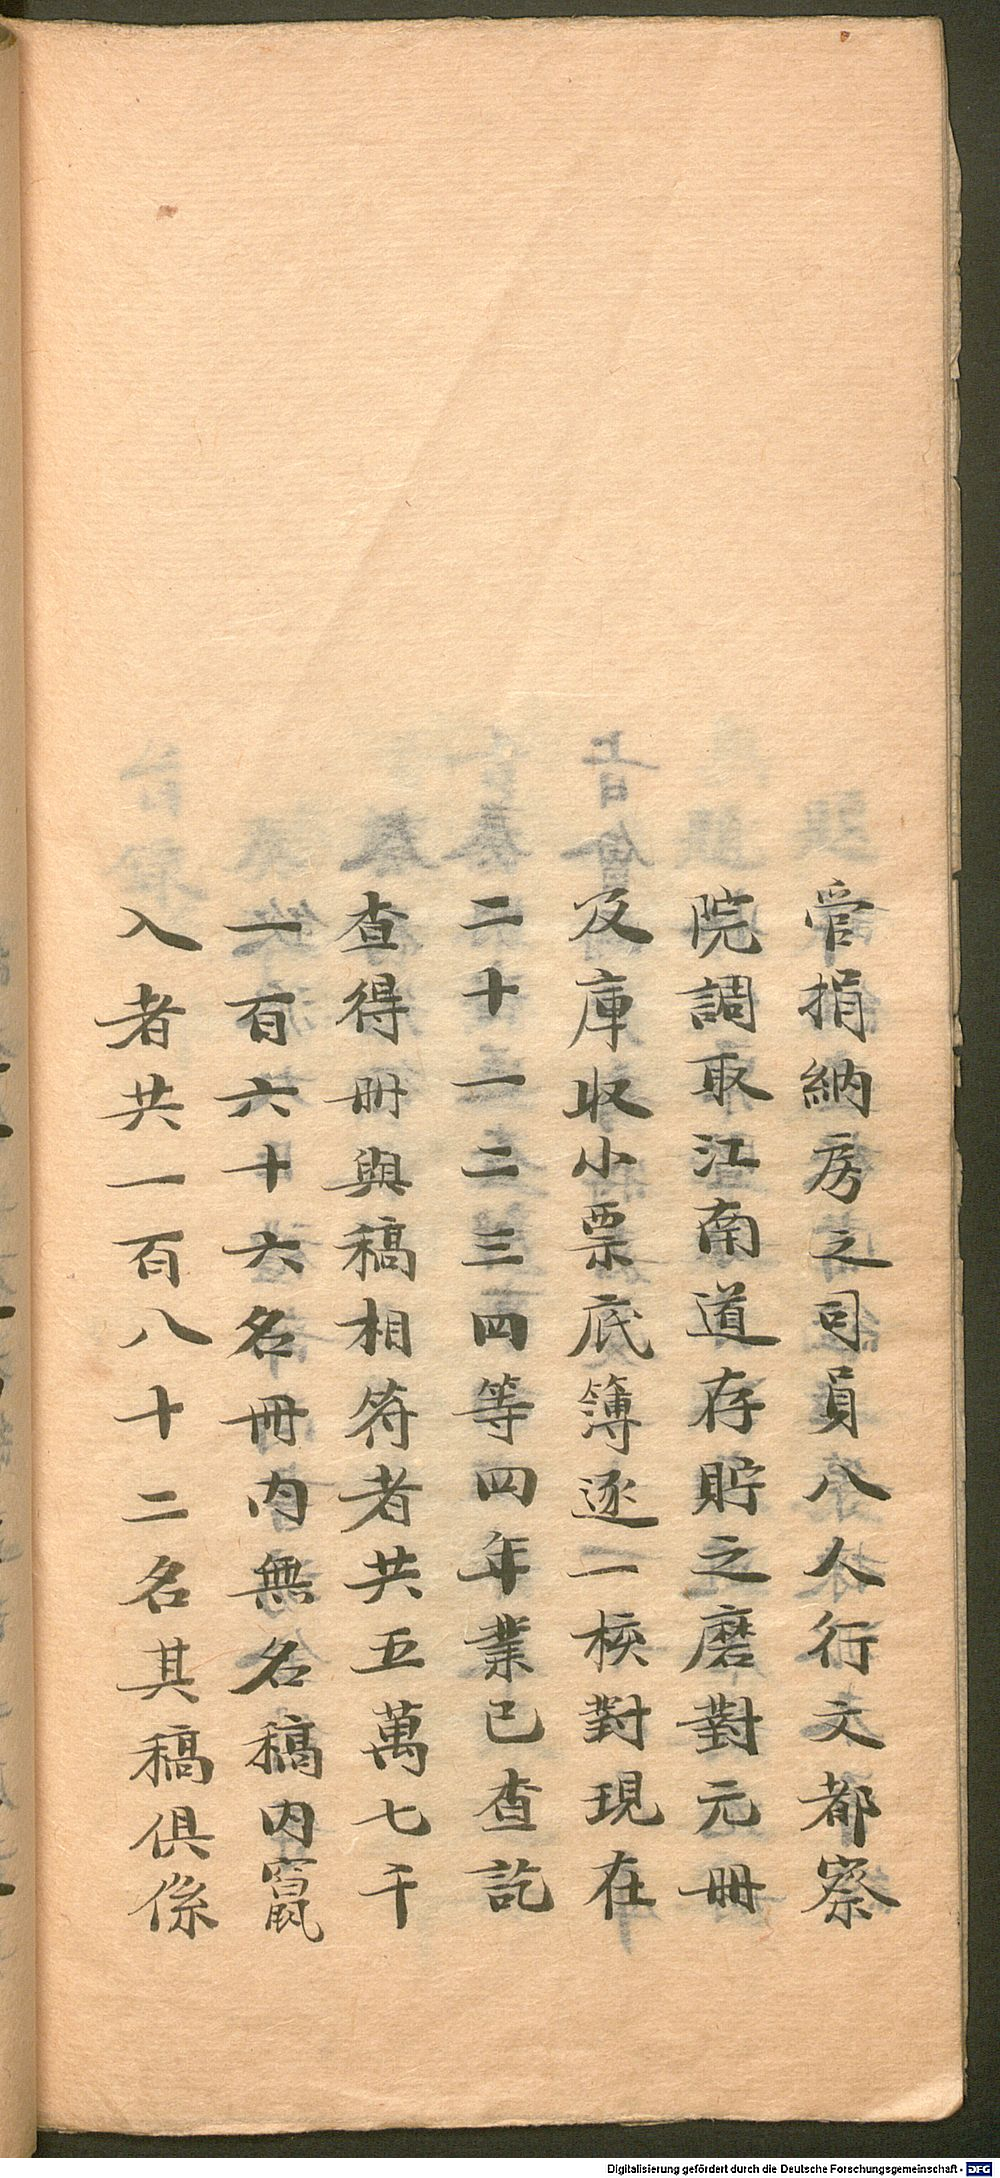 管捐納房之司員八人行文都察
院調取江南道存貯之磨對元冊
及庫收小票底簿逐一校對現在
二十一二三四等四年業已查訖
查得冊與稿相符者共五萬七千
一百六十六名冊内無名稿内竄
入者共一百八十二名其稿俱係
Digitalisierung gefördert durch die Deutsche Forschungsgemeinschaft - DFG